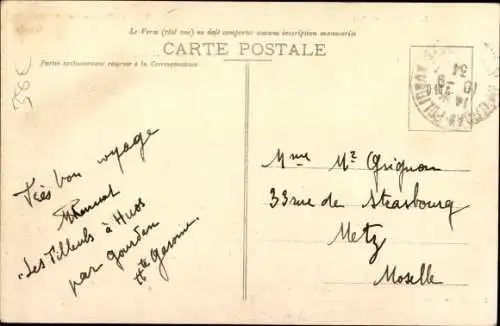 Le Verso (côté vue) ne doit comporter aucune inscription manuscrite
CARTE POSTALE
Partie exclusivement réservée à la Correspondance
36€
Très bon voyage
"Les Tilleuls à Huos
par Gourdan
Hte Garonne
Mme Mce Grignon
33 rue de Strasbourg
Metz
Moselle